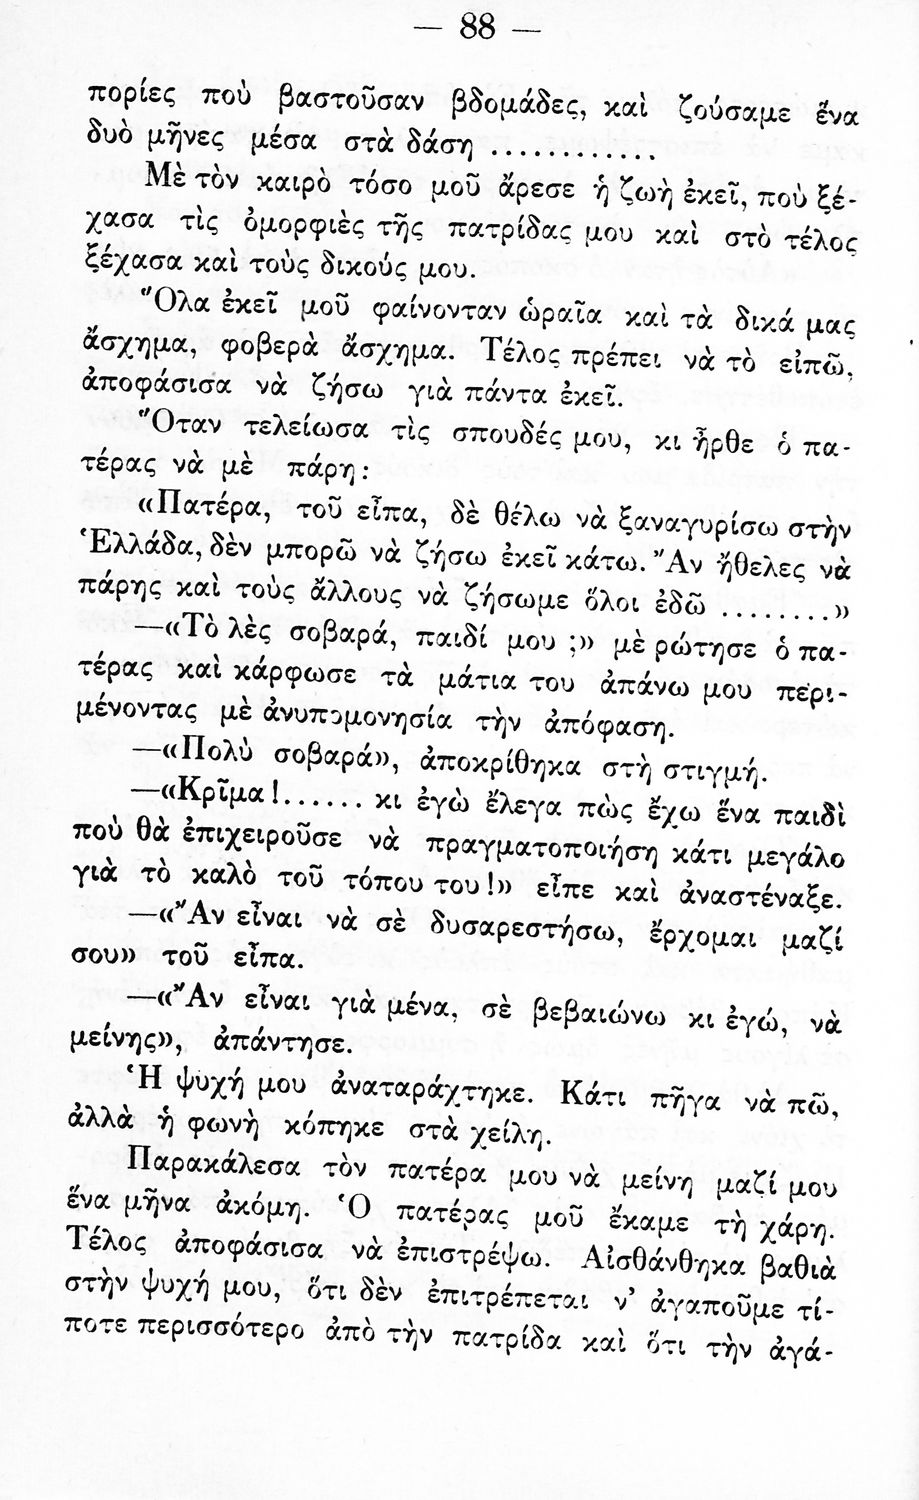 — 88 —
πορίες ποὺ βαστοῦσαν βδομάδες, καὶ ζούσαμε ἕνα
δυὸ μῆνες μέσα στὰ δάση .............
Μὲ τὸν καιρὸ τόσο μοῦ ἄρεσε ἡ ζωὴ ἐκεῖ, ποὺ ξέ-
χασα τὶς ὀμορφιὲς τῆς πατρίδας μου καὶ στὸ τέλος
ξέχασα καὶ τοὺς δικούς μου.
Ὅλα ἐκεῖ μοῦ φαίνονταν ὡραῖα καὶ τὰ δικά μας
ἄσχημα, φοβερὰ ἄσχημα. Τέλος πρέπει νὰ τὸ εἰπῶ,
ἀποφάσισα νὰ ζήσω γιὰ πάντα ἐκεῖ.
Ὅταν τελείωσα τὶς σπουδές μου, κι ἦρθε ὁ πα-
τέρας νὰ μὲ πάρη:
«Πατέρα, τοῦ εἶπα, δὲ θέλω νὰ ξαναγυρίσω στὴν
Ἑλλάδα, δὲν μπορῶ νὰ ζήσω ἐκεῖ κάτω. Ἂν ἤθελες νὰ
πάρης καὶ τοὺς ἄλλους νὰ ζήσωμε ὅλοι ἐδῶ ........»
—«Τὸ λὲς σοβαρά, παιδί μου ;» μὲ ρώτησε ὁ πα-
τέρας καὶ κάρφωσε τὰ μάτια του ἀπάνω μου περι-
μένοντας μὲ ἀνυπομονησία τὴν ἀπόφαση.
—«Πολὺ σοβαρά», ἀποκρίθηκα στὴ στιγμή.
—«Κρῖμα!...... κι ἐγὼ ἔλεγα πὼς ἔχω ἕνα παιδὶ
ποὺ θὰ ἐπιχειροῦσε νὰ πραγματοποιήση κάτι μεγάλο
γιὰ τὸ καλὸ τοῦ τόπου του!» εἶπε καὶ ἀναστέναξε.
—«Ἂν εἶναι νὰ σὲ δυσαρεστήσω, ἔρχομαι μαζί
σου» τοῦ εἶπα.
—«Ἂν εἶναι γιὰ μένα, σὲ βεβαιώνω κι ἐγώ, νὰ
μείνης», ἀπάντησε.
Ἡ ψυχή μου ἀναταράχτηκε. Κάτι πῆγα νὰ πῶ,
ἀλλὰ ἡ φωνὴ κόπηκε στὰ χείλη.
Παρακάλεσα τὸν πατέρα μου νὰ μείνη μαζί μου
ἕνα μῆνα ἀκόμη. Ὁ πατέρας μοῦ ἔκαμε τὴ χάρη.
Τέλος ἀποφάσισα νὰ ἐπιστρέψω. Αἰσθάνθηκα βαθιὰ
στὴν ψυχή μου, ὅτι δὲν ἐπιτρέπεται ν’ ἀγαποῦμε τί-
ποτε περισσότερο ἀπὸ τὴν πατρίδα καὶ ὅτι τὴν ἀγά-